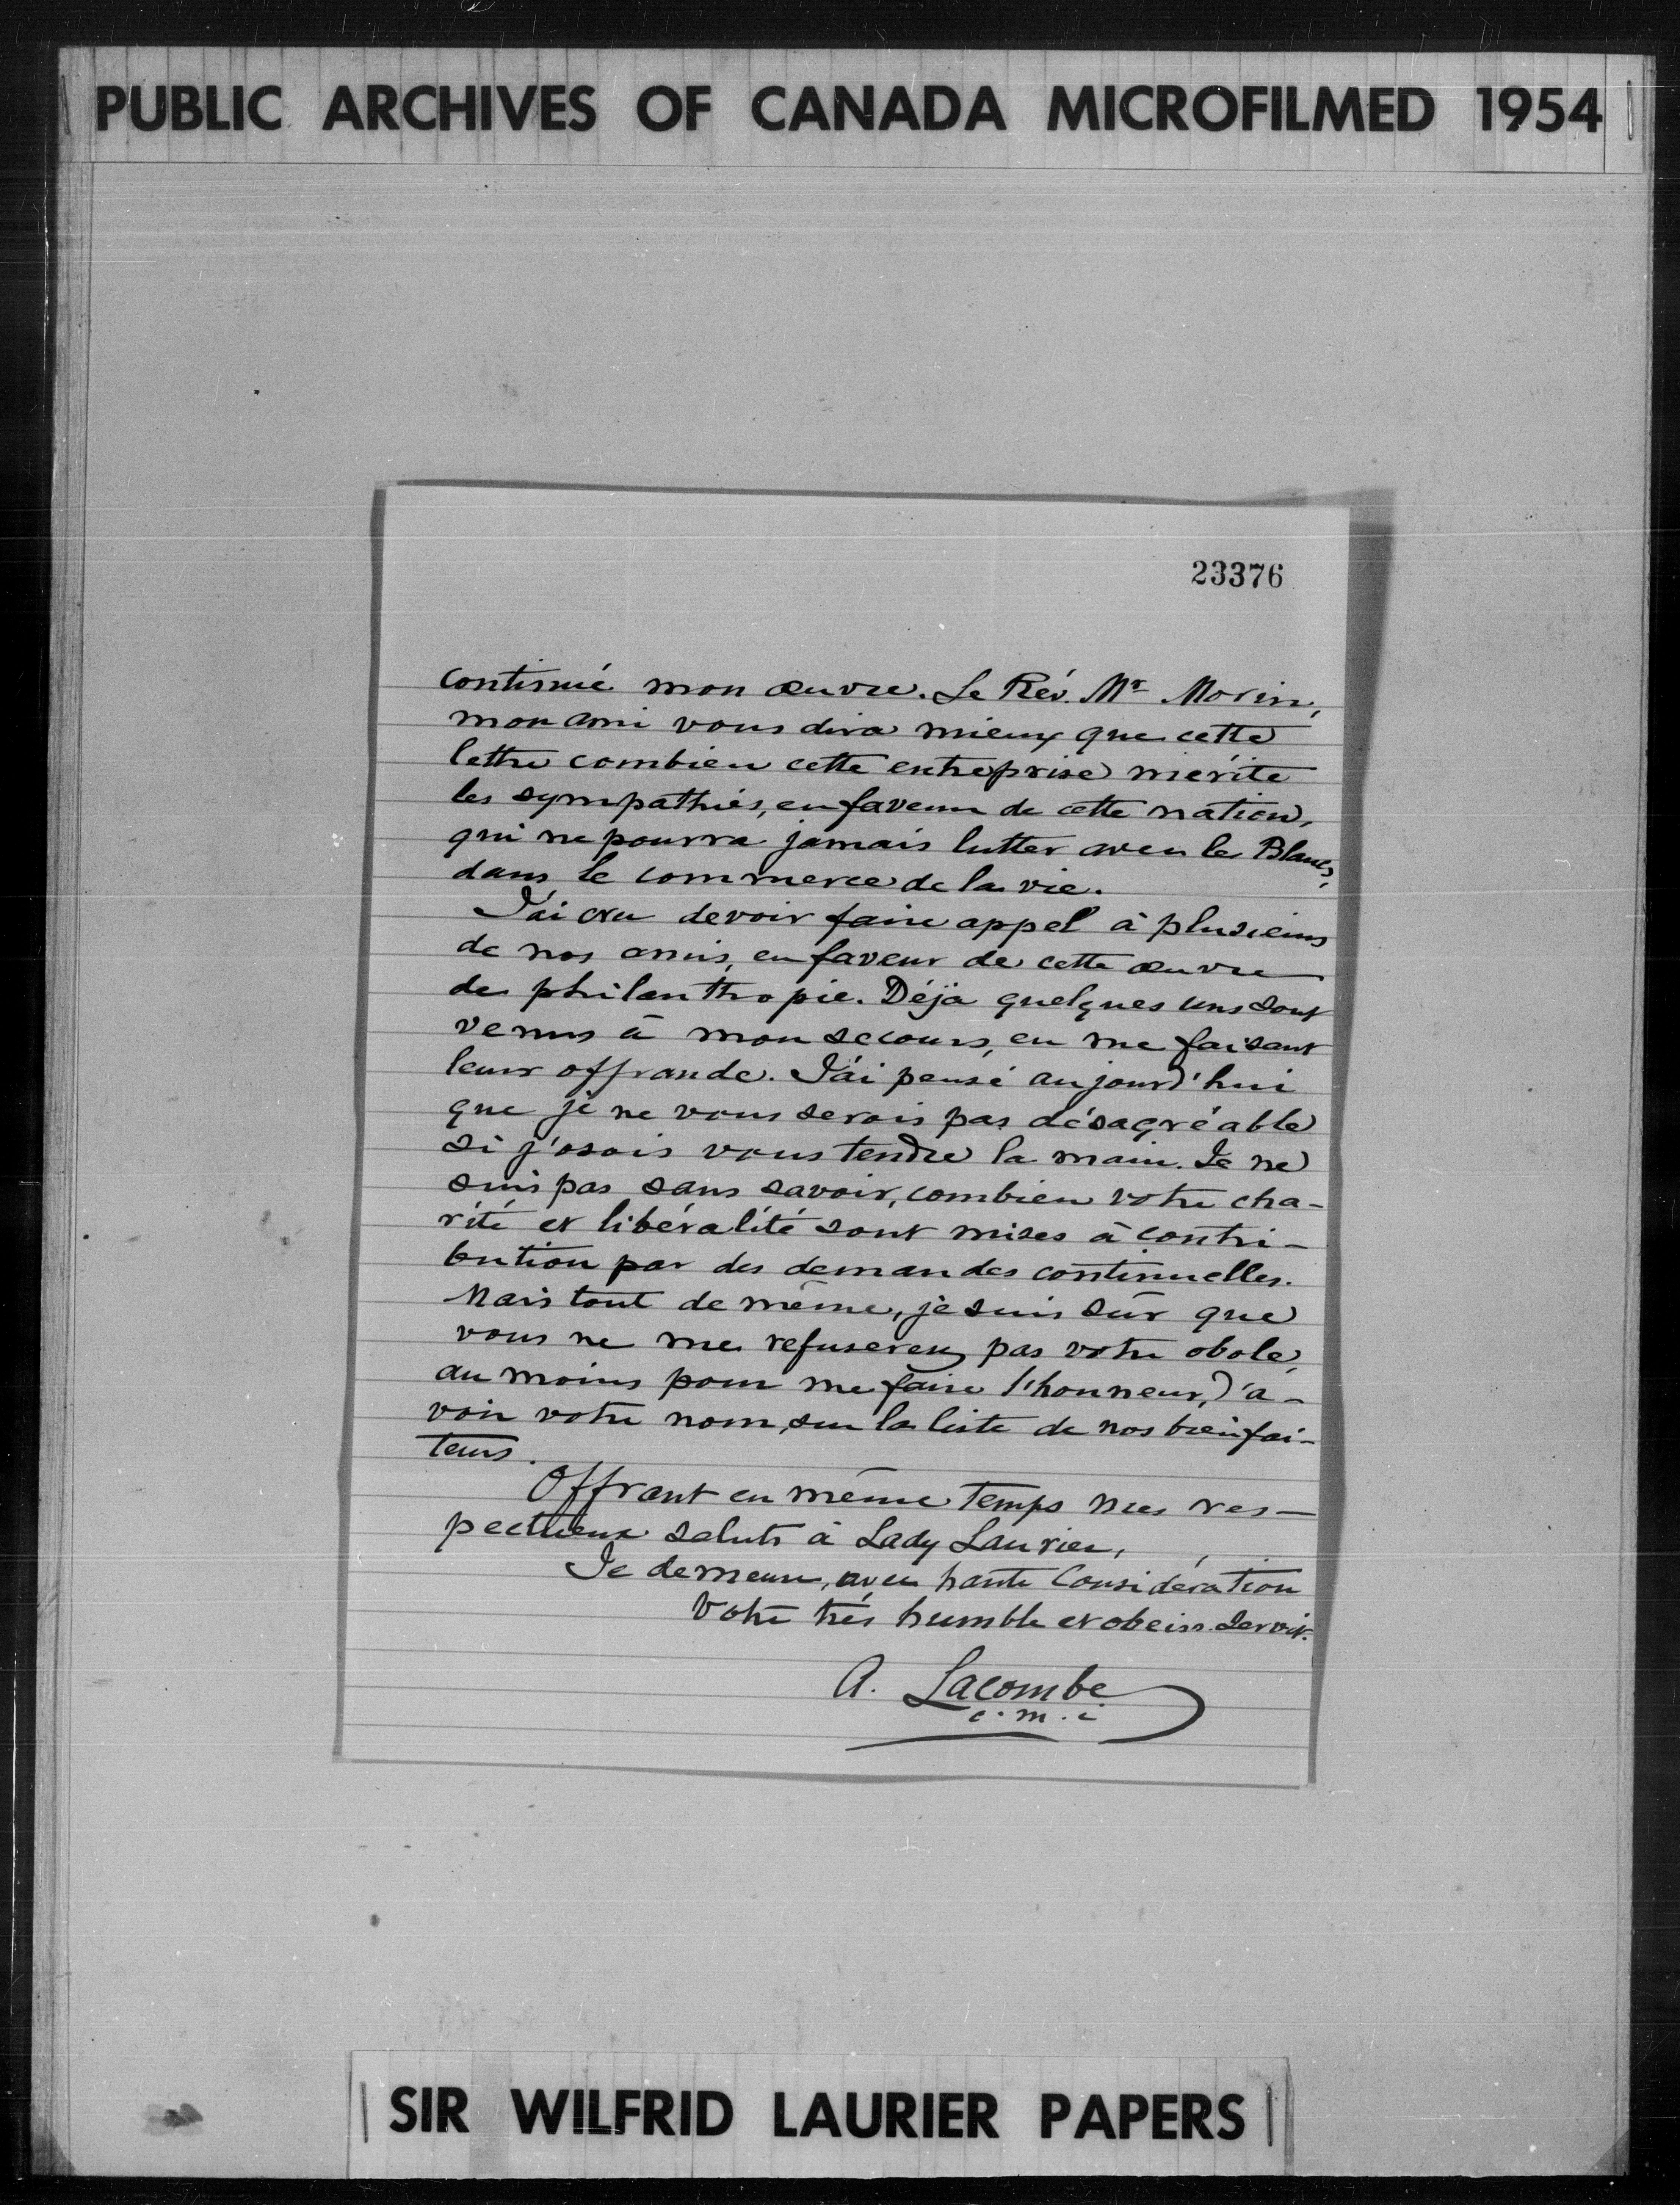 PUBLIC ARCHIVES OF CANADA MICROFILMED 1954
23376
continué mon œuvre. Le Rév. Mr Morin,
mon ami vous dira mieux que cette
lettre combien cette entreprise mérite
les sympathies, en faveur de cette nation,
qui ne pourra jamais lutter avec les Blancs,
dans le commerce de la vie.
J'ai cru devoir faire appel à plusieurs
de nos amis, en faveur de cette œuvre
de philanthropie. Déjà quelques uns sont
venus à mon secours, en me faisant
leur offrande. J'ai pensé aujourd'hui
que je ne vous serais pas désagréable
si j'osais vous tendre la main. Je ne
suis pas sans savoir, combien votre cha-
rité et libéralité sont mises à contri-
bution par des demandes continuelles.
Mais tout de même, je suis sûr que
vous ne me refuserez pas votre obole,
au moins pour me faire l'honneur, d'a-
voir votre nom, sur la liste de nos bienfai-
teurs.
Offrant en même temps mes res-
pectueux saluts à Lady Laurier,
Je demeure, avec haute considération
Votre très humble et obéiss. servit.
A. Lacombe
o.m.i
SIR WILFRID LAURIER PAPERS